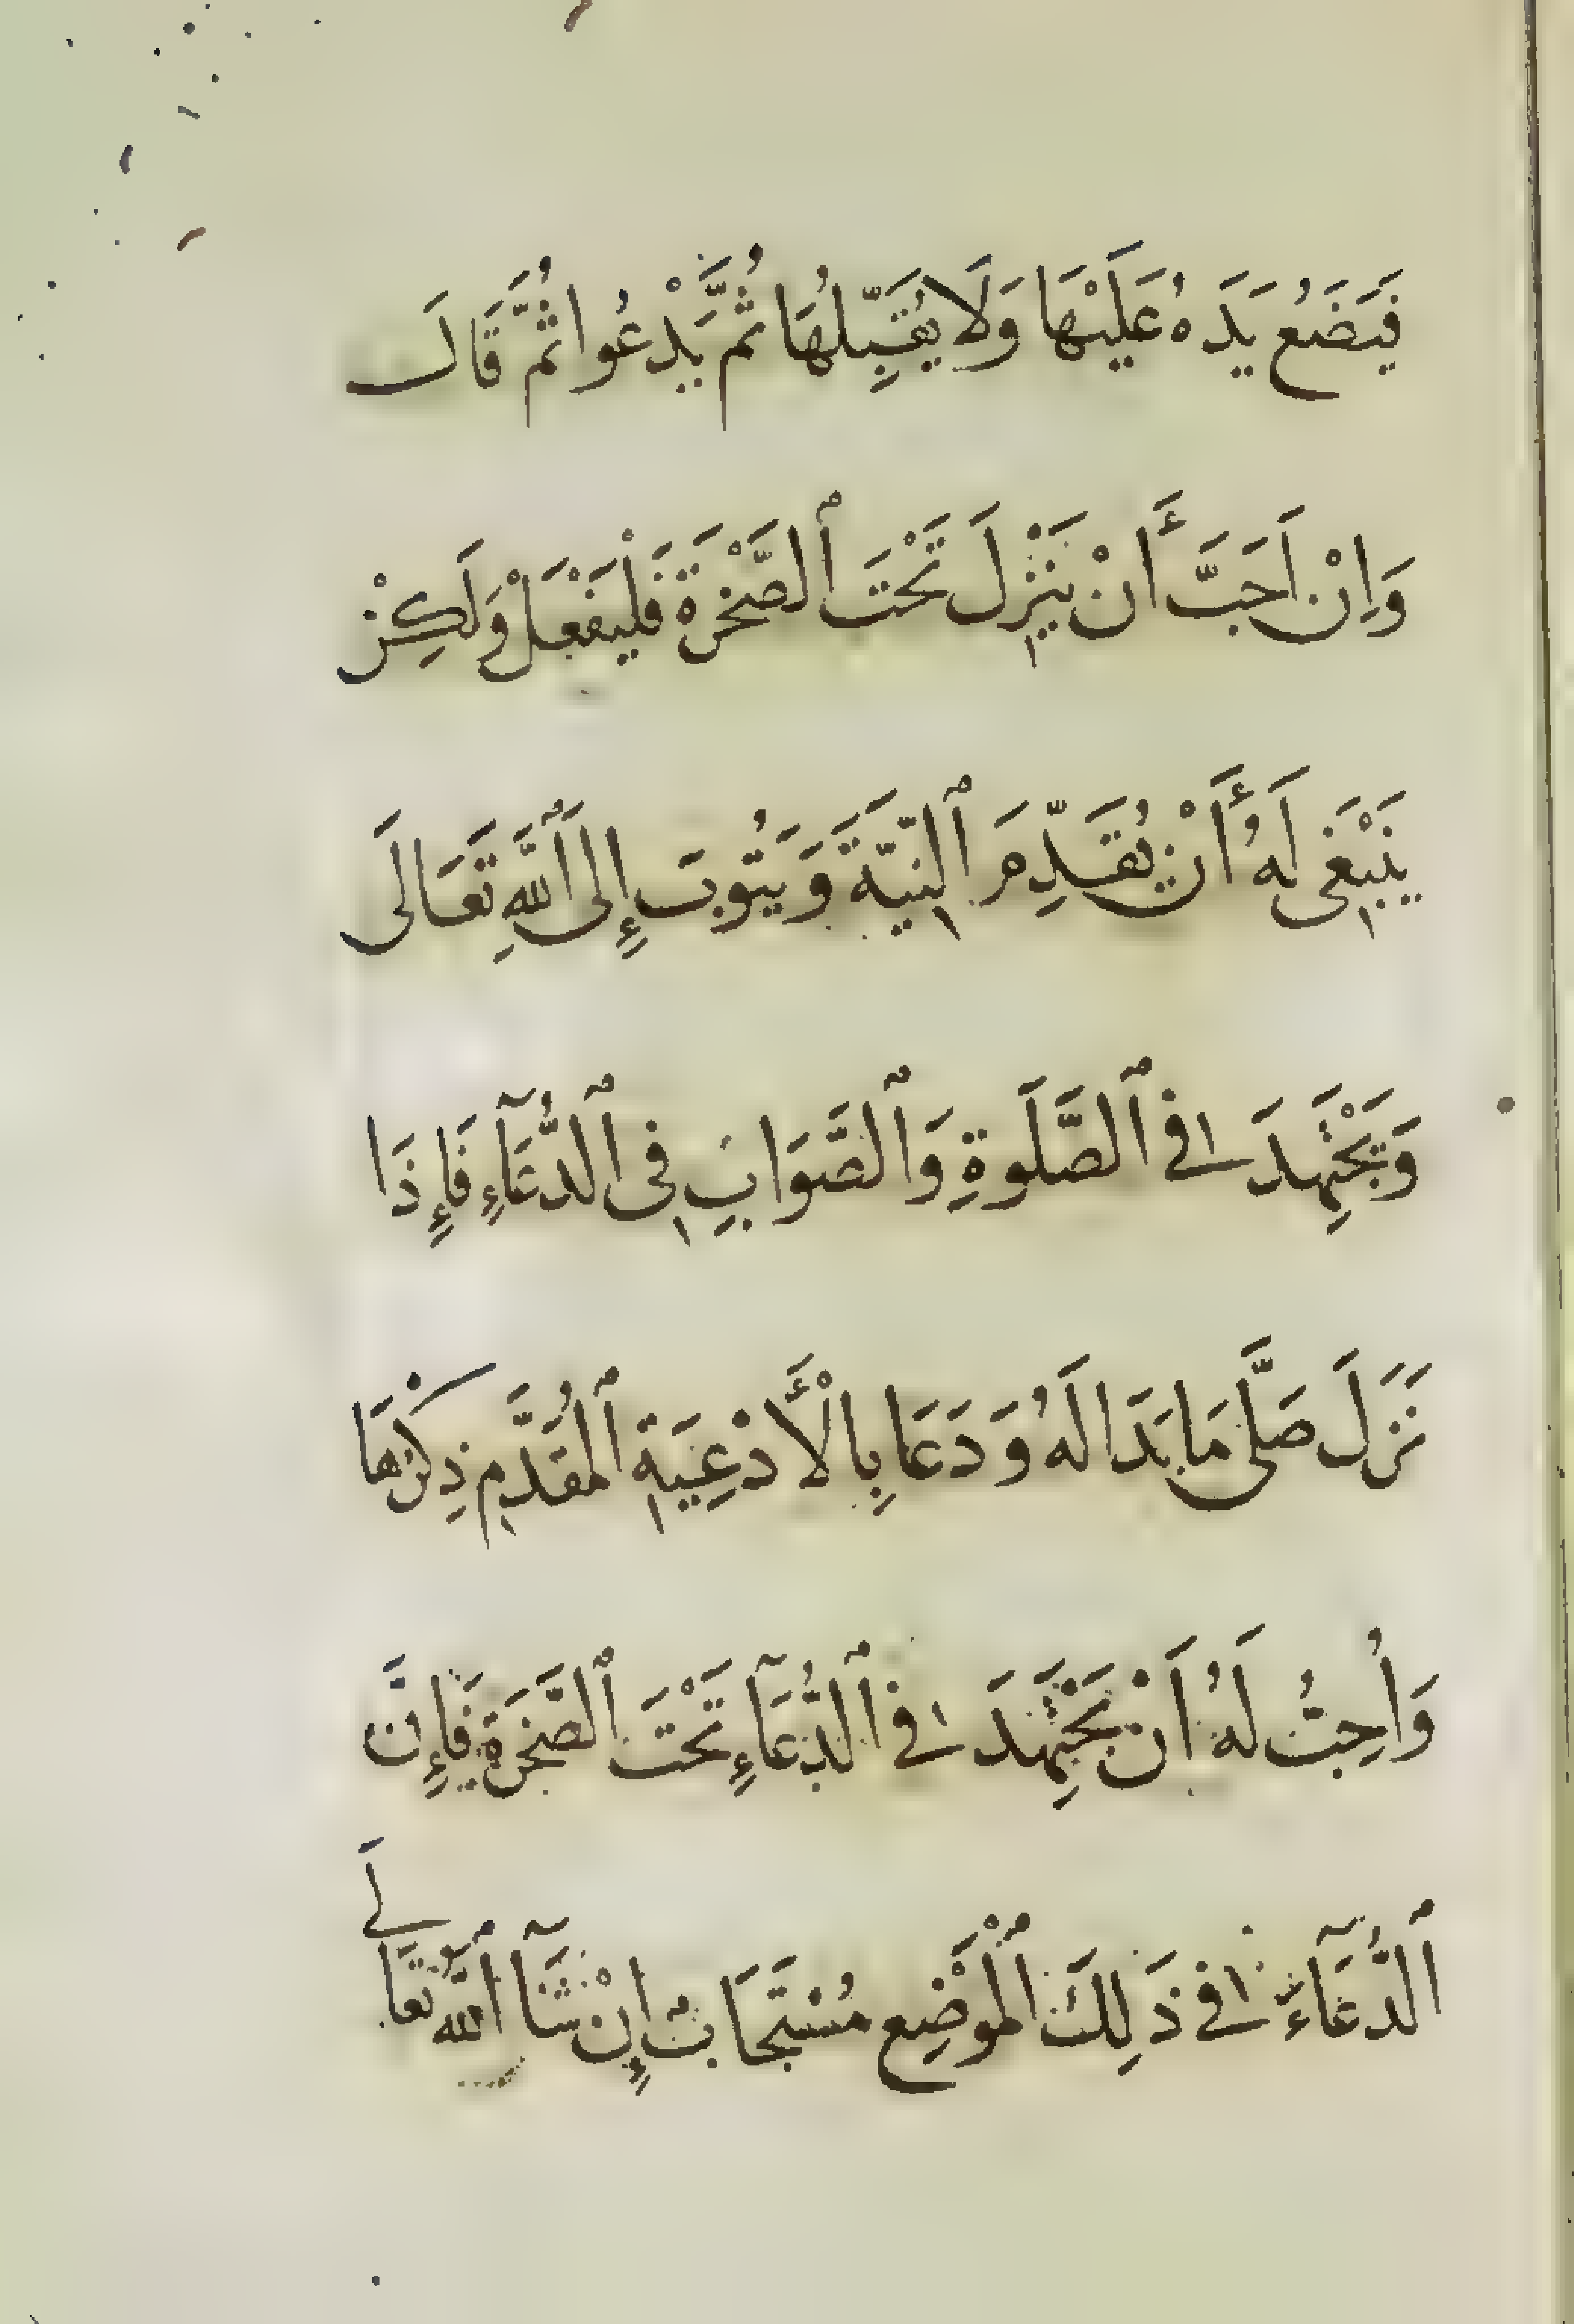 فَيَضَعُ يَدَهُ عَلَيْهَا وَلَا يُقَبِّلُهَا ثُمَّ يَدْعُوا ثُمَّ قَالَ
وَاِنْ اَحَبَّ أَنْ يَنْزِلَ تَحْتَ ٱلصَّخْرَةِ فَلْيَفْعَلْ وَلَكِنْ
يَنْبَغِى لَهُ أَنْ يُقَدِّمَ ٱلنِّيَّةَ وَيَتُوبَ إِلَى ٱللَّهِ تَعَالَى
وَيَجْتَهِدَ فِى ٱلصَّلَوةِ وَٱلصَّوَابِ فِى ٱلدُّعَآءِ فَإِذَا
نَزَلَ صَلَّى مَا بَدَا لَهُ وَدَعَا بِالْأَدْعِيَةِ ٱلْمُقَدَّمِ ذِكْرُهَا
وَاُحِبُّ لَهُ اَنْ يَجْتَهِدَ فِى ٱلدُّعَآءِ تَحْتَ ٱلصَّخْرَةِ فَإِنَّ
ٱلدُّعَآءَ فِى ذَلِكَ ٱلْمَوْضِعِ مُسْتَجَابٌ إِنْ شَآءَ ٱللَّهُ تَعَالَى